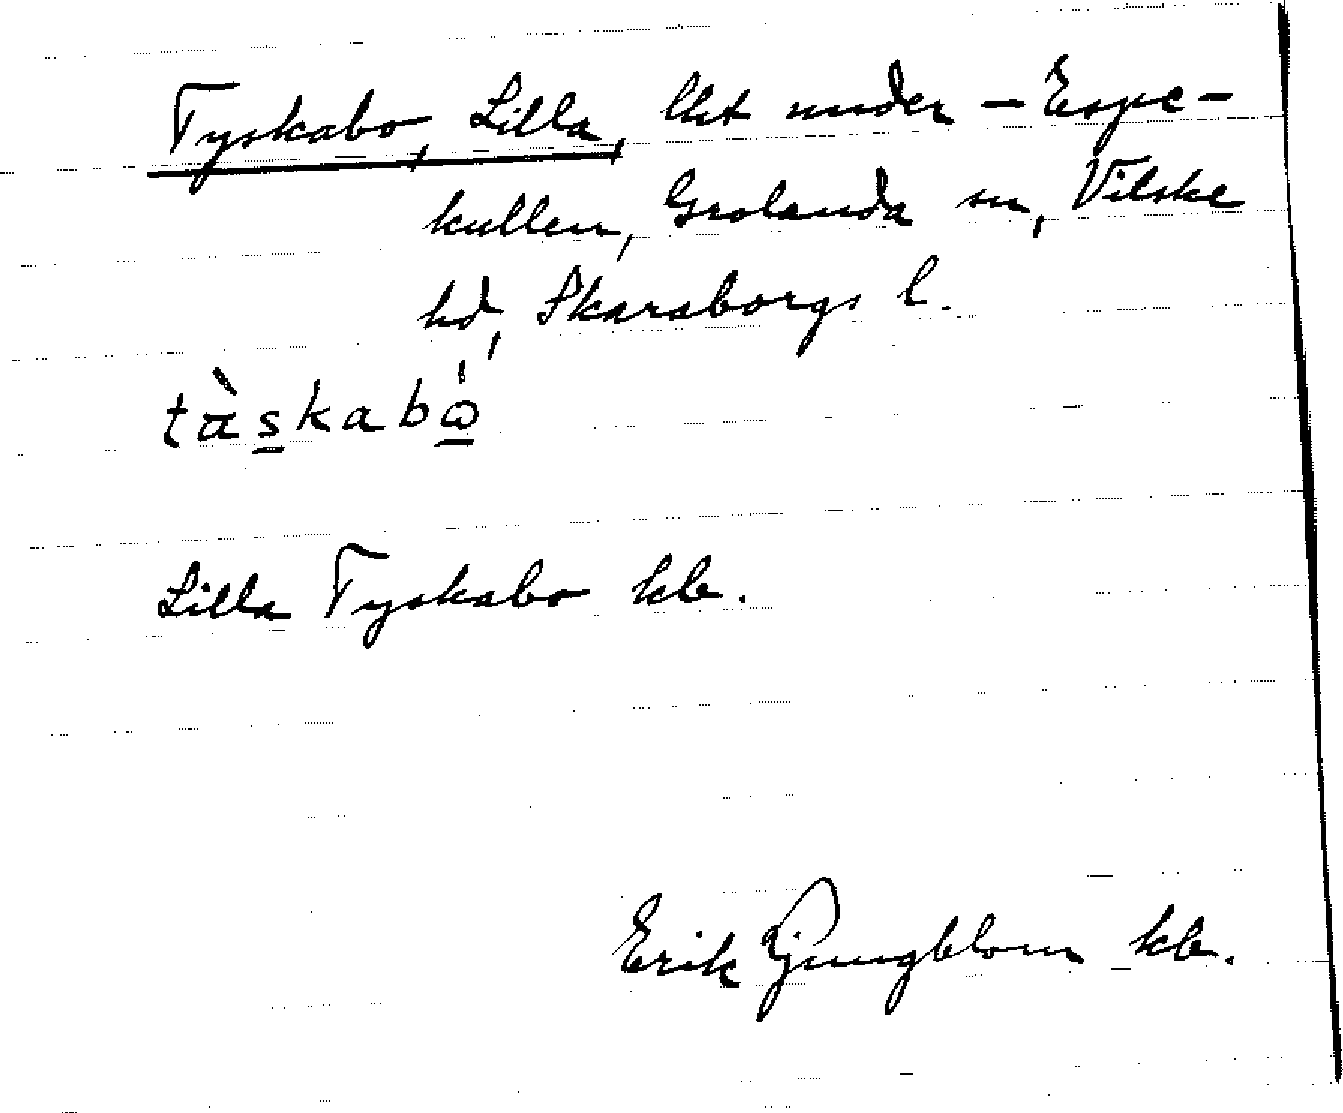 Tyskabo, Lilla, lht under – Espe-
kullen, Grolanda sn, Vilske
hd, Skaraborgs l.
tàskabω̇
Lilla Tyskabo kb.
Erik Ljungblom kb.